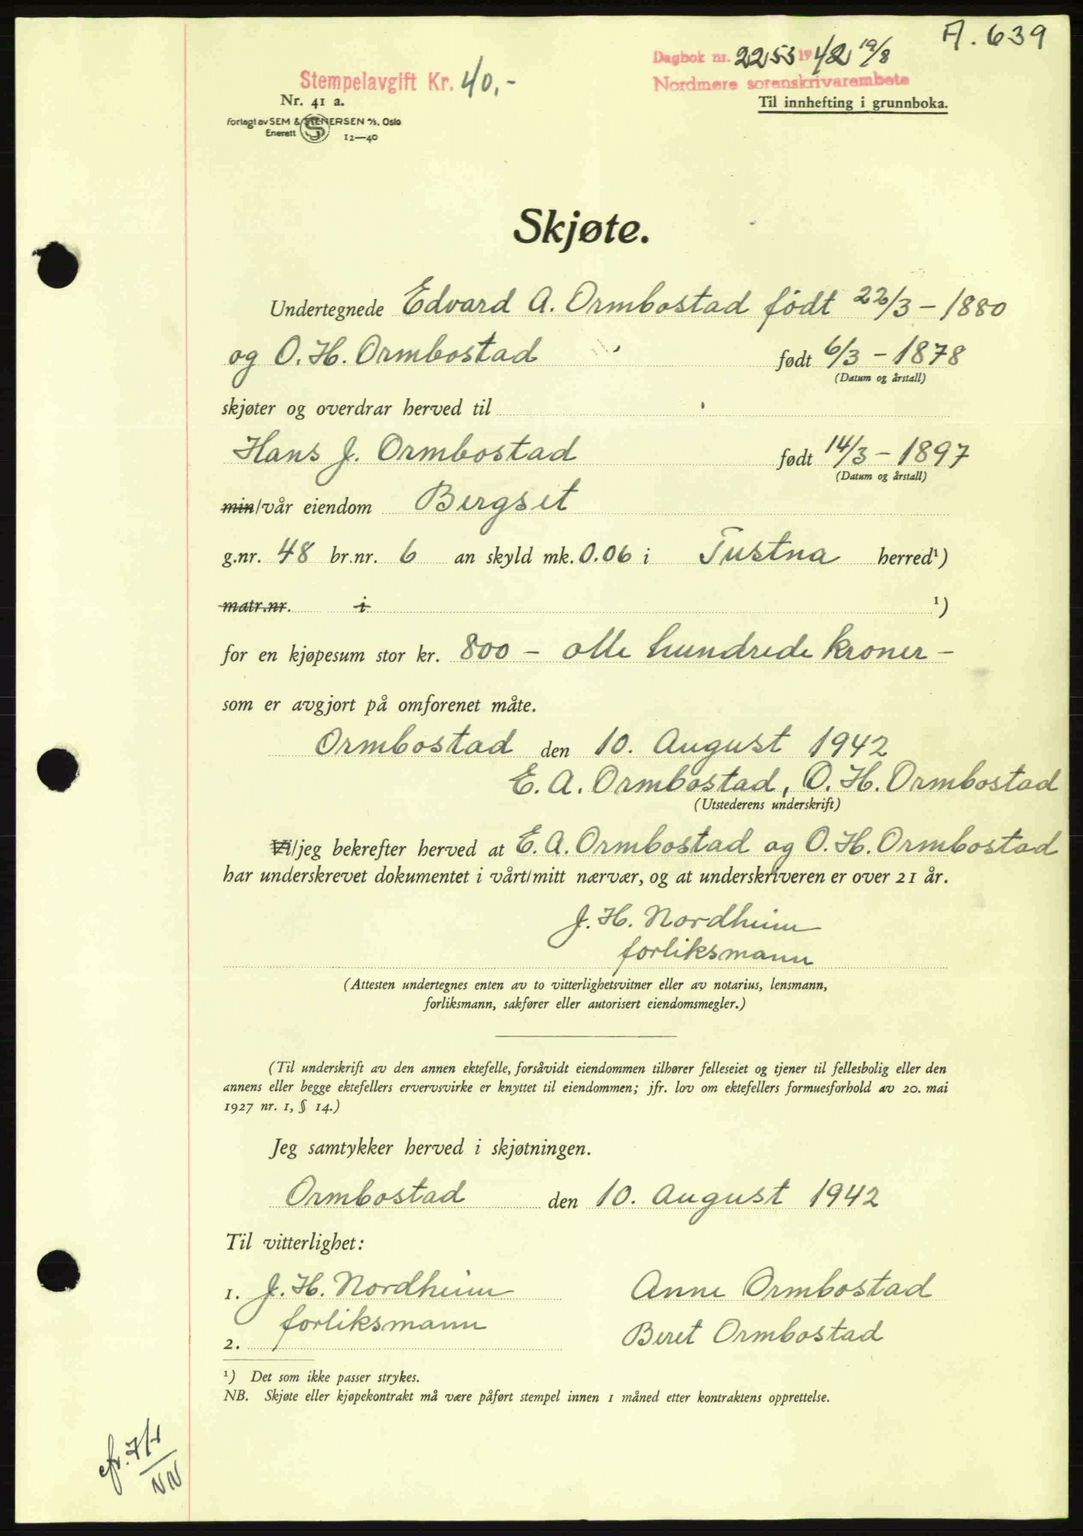 A. 639
Dagbok nr. 2253 1942 19/8
Stempelavgift Kr. 40,-
Nordmøre sorenskrivarembete
Nr. 41 a.
Til innhefting i grunnboka.
Forlagt av SEM & STENERSEN A/S, Oslo
Enerett 12—40
Skjøte.
Undertegnede Edvard A. Ormbostad født 22/3 – 1880
og O. H. Ormbostad født 6/3 – 1878
(Datum og årstall)
skjøter og overdrar herved til
Hans J. Ormbostad født 14/3 – 1897
(Datum og årstall)
min/vår eiendom Bergset
g.nr. 48 br.nr. 6 an skyld mk. 0.06 i Tustna herred¹)
matr.nr. i ¹)
for en kjøpesum stor kr. 800 – otte hundrede kroner –
som er avgjort på omforenet måte.
Ormbostad den 10. August 1942
E. A. Ormbostad, O. H. Ormbostad
(Utstederens underskrift)
Vi/jeg bekrefter herved at E. A. Ormbostad og O. H. Ormbostad
har underskrevet dokumentet i vårt/mitt nærvær, og at underskriveren er over 21 år.
J. H. Nordheim
forliksmann
(Attesten undertegnes enten av to vitterlighetsvitner eller av notarius, lensmann,
forliksmann, sakfører eller autorisert eiendomsmegler.)
(Til underskrift av den annen ektefelle, forsåvidt eiendommen tilhører felleseiet og tjener til fellesbolig eller den
annens eller begge ektefellers ervervsvirke er knyttet til eiendommen; jfr. lov om ektefellers formuesforhold av 20. mai
1927 nr. 1, § 14.)
Jeg samtykker herved i skjøtningen.
Ormbostad den 10. August 1942
Til vitterlighet:
1. J. H. Nordheim Anne Ormbostad
forliksmann Beret Ormbostad
2.
¹) Det som ikke passer strykes.
NB. Skjøte eller kjøpekontrakt må være påført stempel innen 1 måned etter kontraktens opprettelse.
NN